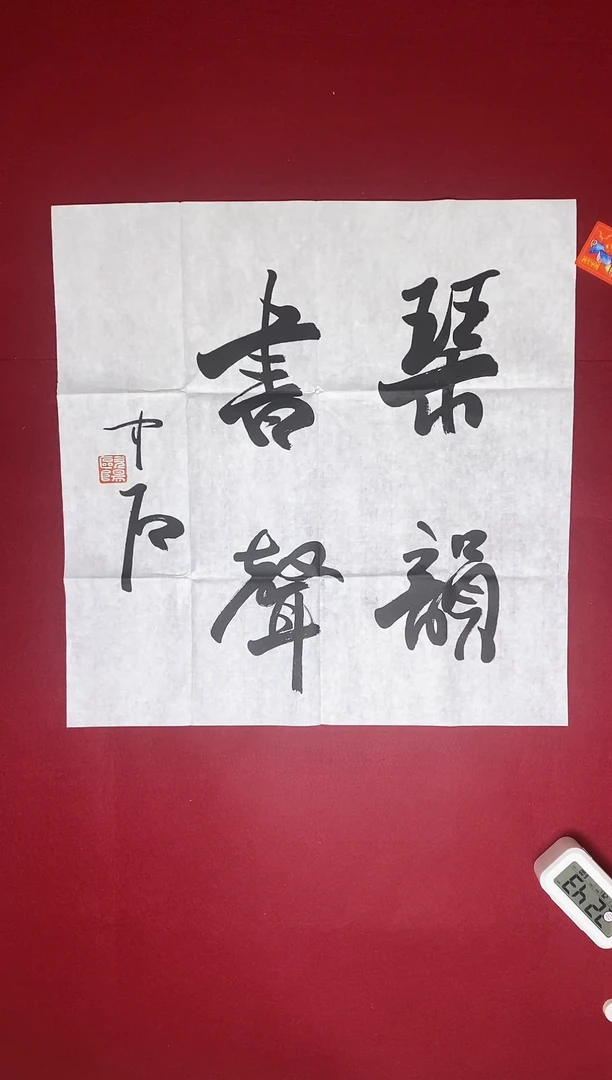 琴韻
書聲
中石